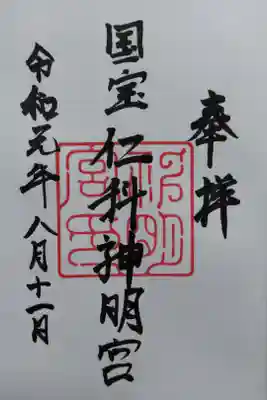 奉拝
国宝 仁科神明宮
令和元年八月十一日